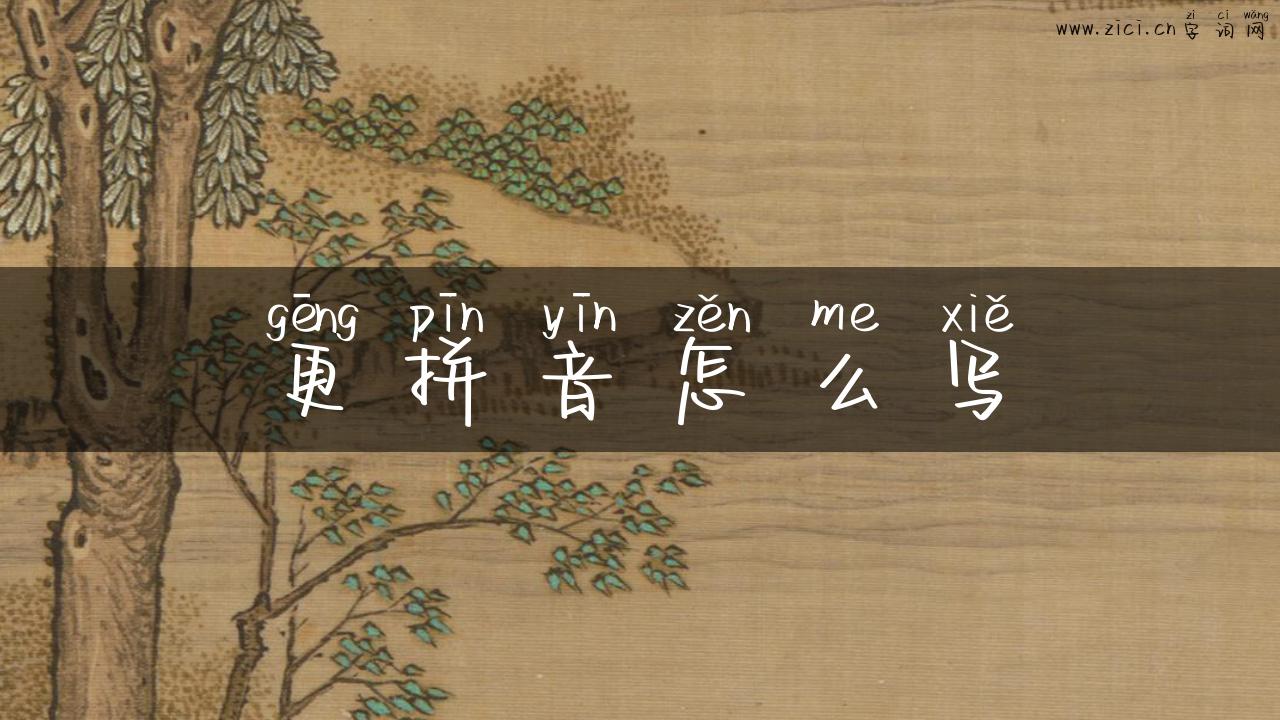 zì cí wǎng
www.zici.cn 字 词 网
gēng pīn yīn zěn me xiě
更 拼 音 怎 么 写